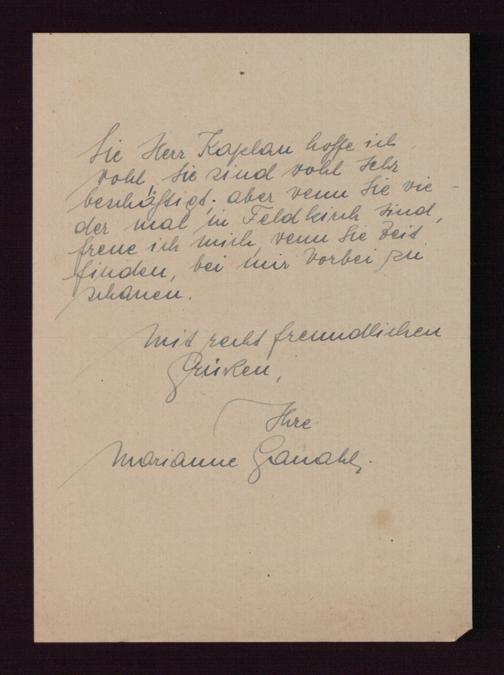 Sie Herr Kaplan hoffe ich
wohl, Sie sind wohl sehr
beschäftigt, aber wenn Sie wie
der mal in Feldkirch sind,
freue ich mich, wenn Sie Zeit
finden, bei mir vorbei zu
schauen.
Mit recht freundlichen
Grüßen,
Ihre
Marianne Ganahl.